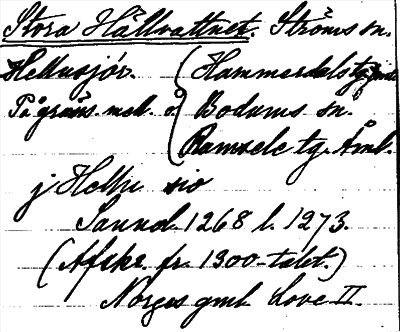 Stora Hällvattnet. Ströms sn.
Hellusjór. (Hammerdals tg. Jmtl.
På gräns mell. o. Bodums sn.
Ramsele tg. Ång.
j Hellu sio
Sannol. 1268 l. 1273.
(Afskr. fr. 1300-talet.)
Norges gml. Love II.